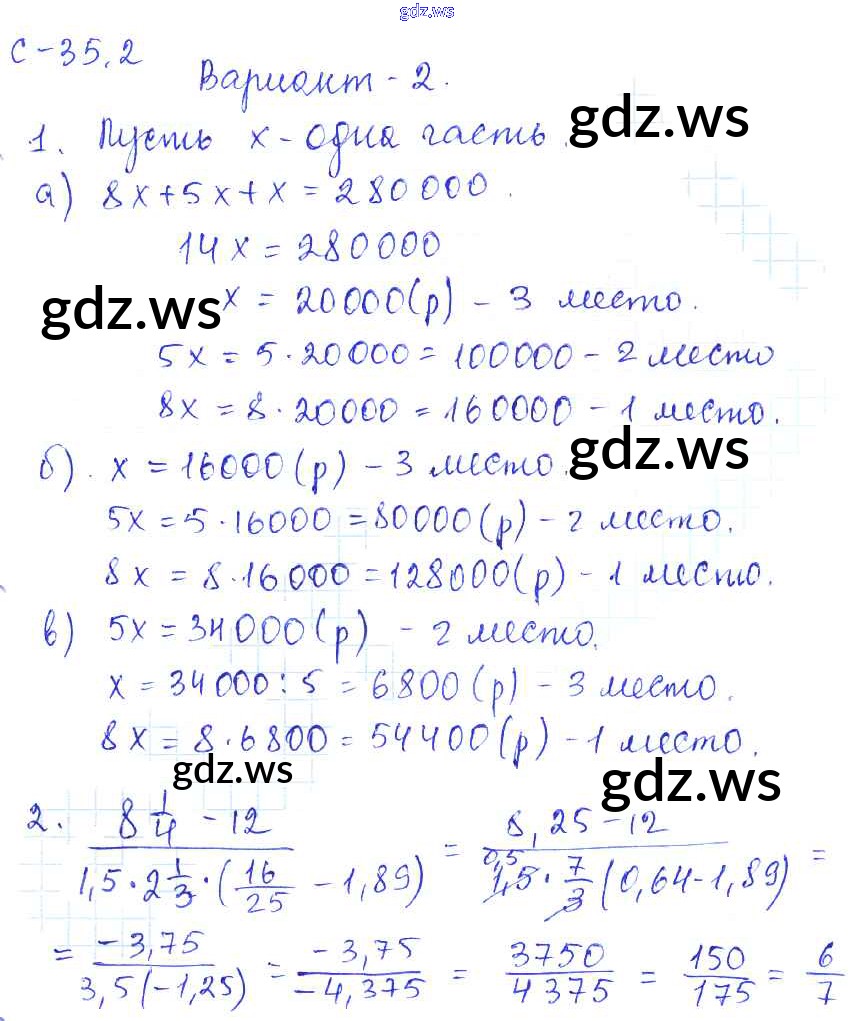 gdz.ws
С-35,2
Вариант-2.
1. Пусть x - одна часть. gdz.ws
а) 8x+5x+x=280000.
14x=280000
gdz.ws x = 20000(р) - 3 место.
5x = 5·20000=100000 - 2 место
8x = 8·20000=160000 - 1 место.
б). x = 16000(р) - 3 место. gdz.ws
5x=5·16000=80000(р) - 2 место.
8x = 8·16000=128000(р) - 1 место.
в) 5x=34000(р) - 2 место.
x = 34000:5 = 6800(р) - 3 место.
8x = 8·6800=54400(р) - 1 место.
gdz.ws gdz.ws
2. (8 1/4 - 12)/(1,5·2 1/3·(16/25 - 1,89)) = (8,25-12)/(0,5 1,5·7/3(0,64-1,89)) =
= -3,75/3,5(-1,25) = -3,75/-4,375 = 3750/4375 = 150/175 = 6/7